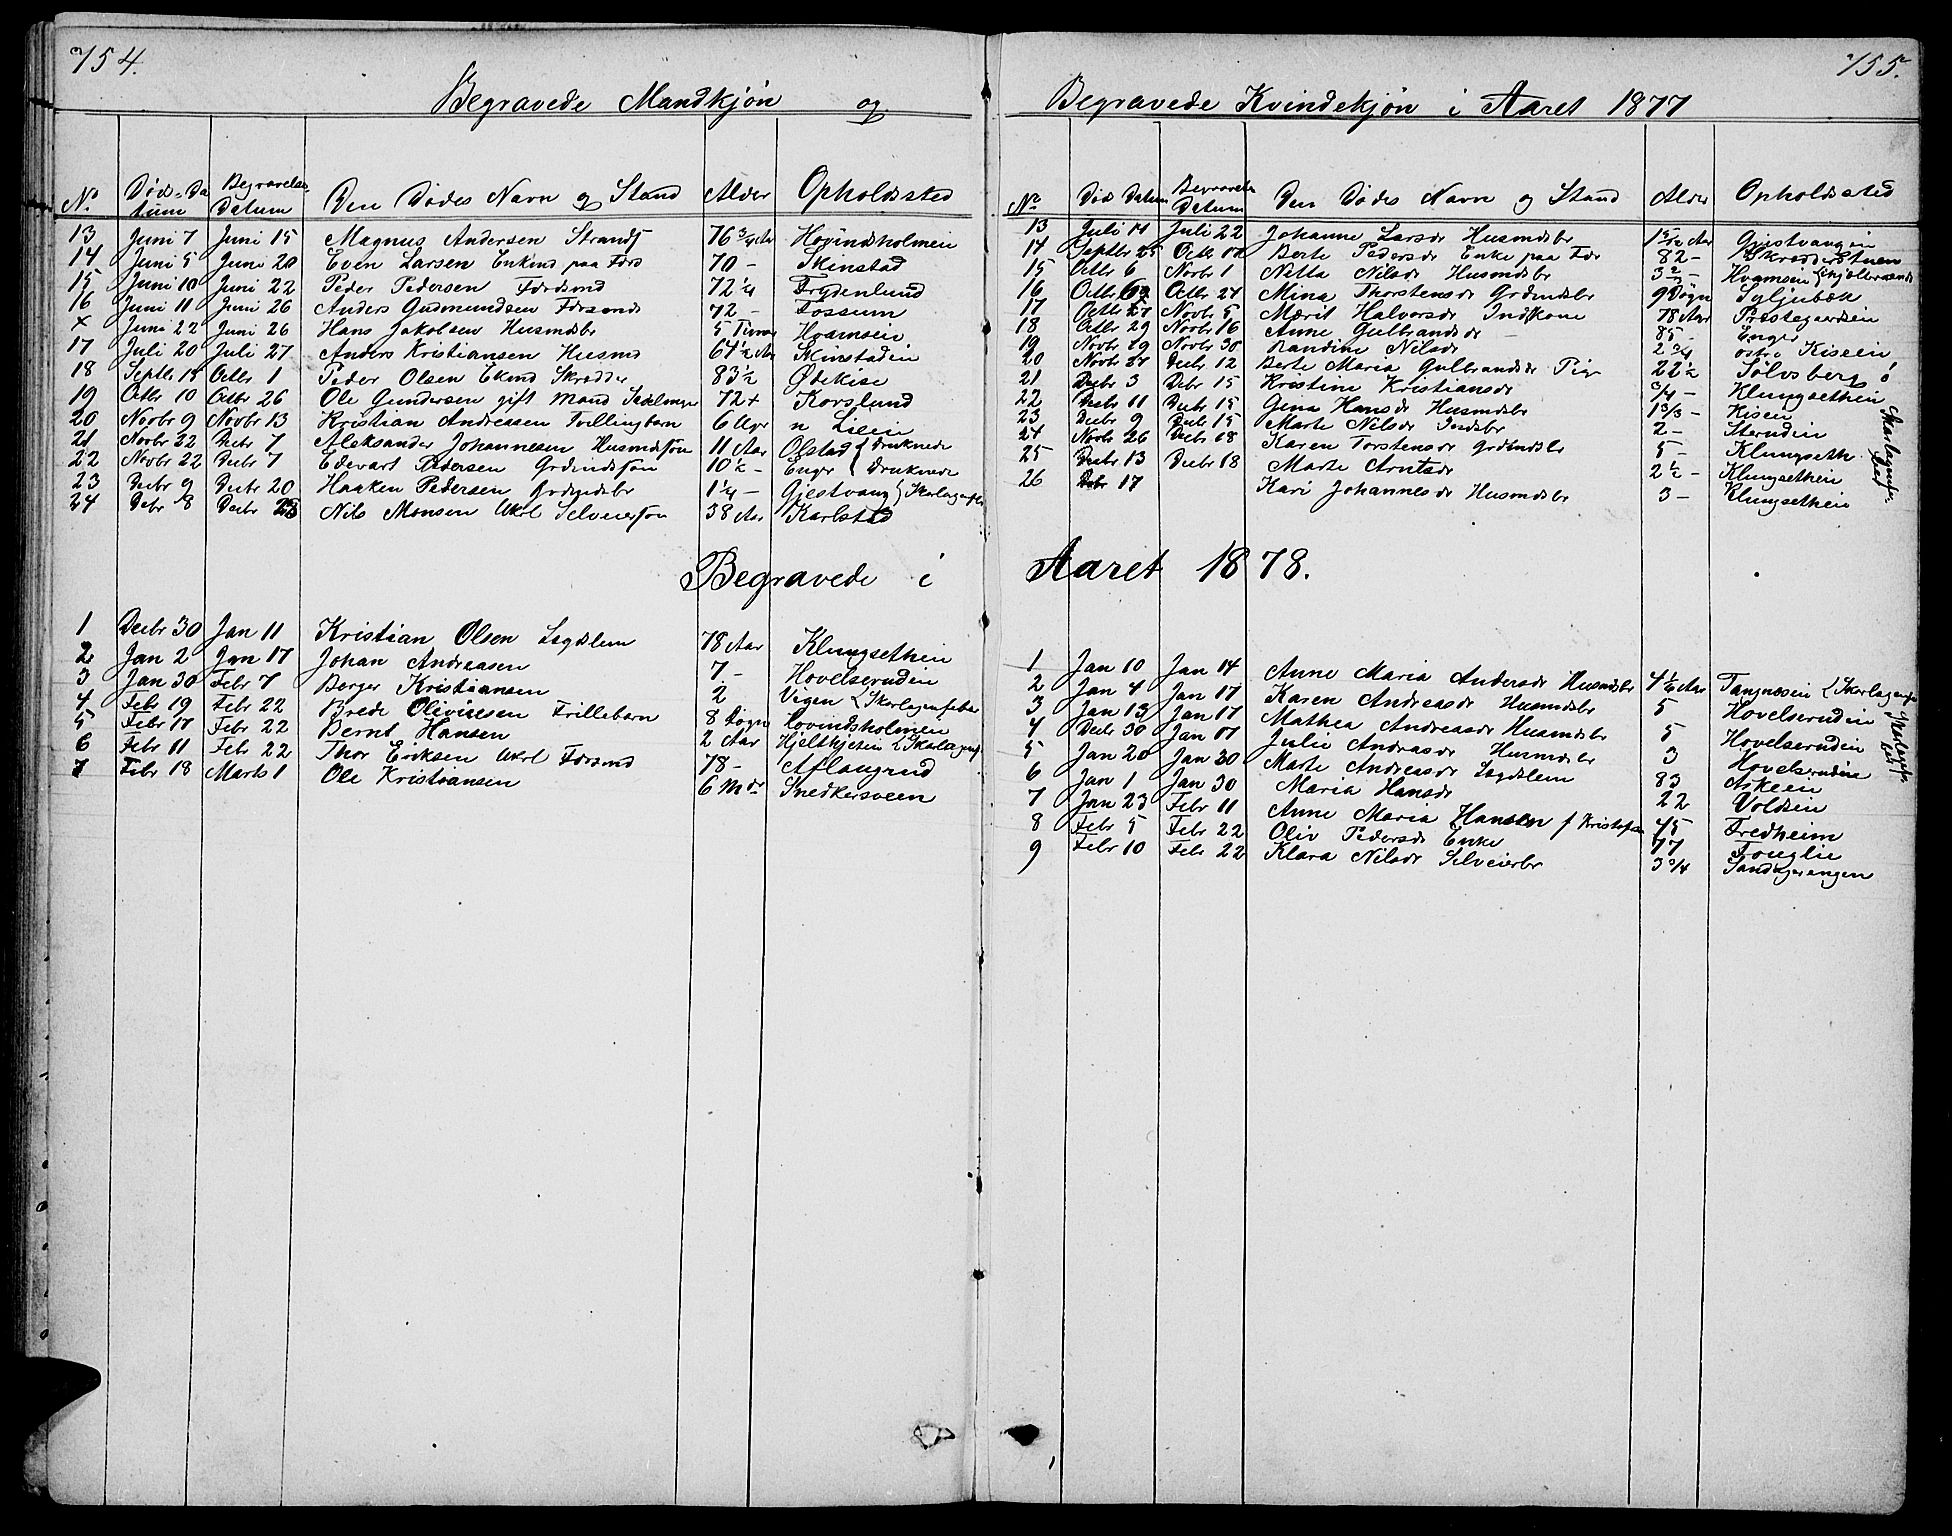 754.
Begravede Mandkjøn og
No Død-Datum Begravelse Datum Den Dødes Navn og Stand Alder Opholdssted
13 Juni 7 Juni 15 Magnus Andersen Strands 76 3/4 Aar Hovindsholmen
14 Juni 5 Juni 20 Even Larsen Enkmd paa Førs 70 - Skinstad
15 Juni 10 Juni 22 Peder Pedersen Førdsmd 72 1/4 Frydenlund
16 Juni 11 Juni 26 Anders Gudmundsen Førsmd 72 - Fossum
+ Juni 22 Juni 26 Hans Jakobsen Husmdsbr 5 Timer Hvamseie
17 Juli 20 Juli 27 Anders Kristiansen Husmd 64 1/2 Aar Skinstadeie
18 Septbr 15 Octbr 1 Peder Olsen Ekmd Skrædder 83 1/2 Ødekise
19 Octbr 10 Octbr 26 Ole Gundersen gift Mand 72 + Korslund
20 Novbr 9 Novbr 13 Kristian Andreasen Tvillingbarn 6 Uger n Lieie
21 Novbr 22 Decbr 7 Aleksander Johannesen Husmdssøn 11 Aar Olstad { Druknede
22 Novbr 22 Decbr 7 Edevart Pedersen Grdmdssøn 10 1/2 - Enger { Druknede
23 Decbr 9 Decbr 20 Haaken Pedersen Grdmdsbr 1 1/4 - Gjestvang { Skarlagensfb
24 Debr 8 Decbr Nils Monsen Ukrl Selveiersøn 38 Aar Karlstad
Begravede i
1 Decbr 30 Jan 11 Kristian Olsen Lægdslem 78 Aar Klungsetheie
2 Jan 2 Jan 17 Johan Andreasen 7 - Hovelsrudeie
3 Jan 30 Febr 7 Borger Kristiansen 2 Vigen { Skarlagensfeber
4 Febr 19 Febr 22 Brede Oliviresen Frillebarn 8 Døgn Hovindsholmen
5 Febr 17 Febr 22 Bernt Hansen 2 Aar Hjeltkjetin { Skarlagensf
6 Febr 11 Febr 22 Thor Eriksen Ukrl Førsmd 78 - Aflangrud
7 Febr 18 Marts 1 Ole Kristiansen 6 Mdr Snedkersveen
755.
Begravede Kvindekjøn i Aaret 1877
No Død Datum Begravelse Datum Den Dødes Navn og Stand Alder Opholdssted
13 Juli 11 Juli 22 Johanne Larsdr Husmdsbr 1 5/12 Aar Gjestvangeie
14 Septbr 25 Octbr 12 Berte Pedersdr Enke paa Før 82 - Skrædderstuen
15 Octbr 6 Novbr 1 Netta Nilsdr Husmdsbr 3 2/3 - Hvamseie
16 Octbr Octbr 24 Mina Thorstensdr Grdmdsbr 9 Døgn Syljubæk
17 Octbr 27 Novbr 5 Mærit Halvorsdr Indskone 78 Aar Præstegaardseie
18 Octbr 29 Novbr 16 Anne Gulbrandsdr 85 - Enger
19 Novbr 29 Novbr 30 Randine Nilsdr 2 3/4 østre Kiseeie
20 Novbr 24 Decbr 12 Berte Maria Gulbrandsdr Pige 22 1/2 Sølvsberg
21 Decbr 3 Debr 15 Kristine Kristiansdr 3/4 - Klungsetheie
22 Decbr 11 Decbr 15 Gina Hansdr Husmdsbr 1 3/8 - Kiseie
23 Decbr 9 Decbr 15 Marte Nilsdr Indsbr 2 - Sterudeie
24 Novbr 26 Decbr 18 Karen Torstensdr Grdmdsbr 5 - Klungseth
25 Decbr 13 Decbr 18 Marte Arntsdr 2 1/2 - Klungsetheie
26 Debr 17 Kari Johannesdr Husmdsbr 3 - Klungsetheie
Skarlagensfeber
Aaret 1878.
1 Jan 10 Jan 14 Anne Maria Andersdr Husmdsbr 4 1/6 Aar Tangnæseie { Skarlagensfe
2 Jan 4 Jan 17 Karen Andreasdr Husmdsbr 5 Hovelsrudeie
3 Jan 13 Jan 17 Mathea Andreasdr Husmdsbr 5 Hovelsrudeie
4 Decbr 30 Jan 17 Julie Andreasdr Husmdsbr 3 Hovelsrudeie
5 Jan 20 Jan 30 Marte Andreasdr Lægdslem 83 Askeeie
6 Jan 1 Jan 30 Maria Hansdr 22 Voldseie
7 Jan 23 Febr 11 Anne Maria Hansen f Kristofsn 45 Fredheim
8 Febr 5 Febr 22 Oliv Pedersdr Enke 77 Fouglie
9 Febr 10 Febr 22 Klara Nilsdr Selveierbr 3 3/4 Sandagerengen